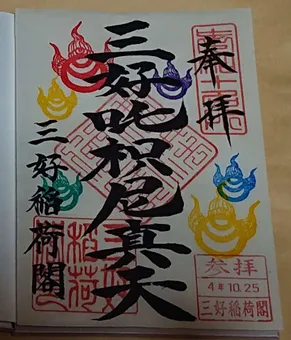 奉拝
三好吒枳尼真天
三好稲荷閣
参拝
4年10.25
三好稲荷閣